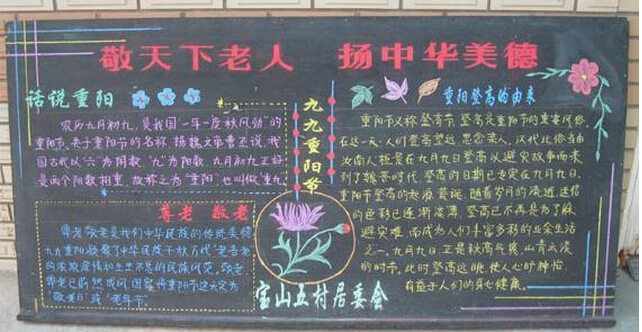 敬天下老人 扬中华美德
话说重阳
农历九月初九,是我国一年一度秋风劲的
重阳节。关于重阳节的名称,据魏文帝曹丕说,我
国古代以“六”为阴数,“九”为阳数,九月初九正好
是两个阳数相重,故称之为“重阳”也叫做“重九”
尊老 敬老
尊老敬老是我们中华民族的传统美德
九九重阳凝聚了中华民族千秋万代“老吾老
的浓浓真情和生生不息的民族风范,敬老、
尊老已蔚然成风,国家将重阳节这天定为
“敬老日”或“老年节”。
九九重阳节
宝山五村居委会
重阳登高的由来
重阳节又称登高节,登高是重阳节的重要风俗
在这一天,人们登高望远,思念亲人,汉代此俗由
汝南人桓景在九月九日登高以避灾故事而来
到了魏晋时代,登高的日期已专定在九月九日,
重阳节登高的起源荒诞,随着岁月的流逝,迷信
的色彩已逐渐淡薄,登高已不再是为了躲
避灾难,而成为人们丰富多彩的业余生活
之一。九月九日,正是秋高气爽,山青云淡
的时节,此时登高远眺,使人心旷神怡,
有益于人们的身心健康。